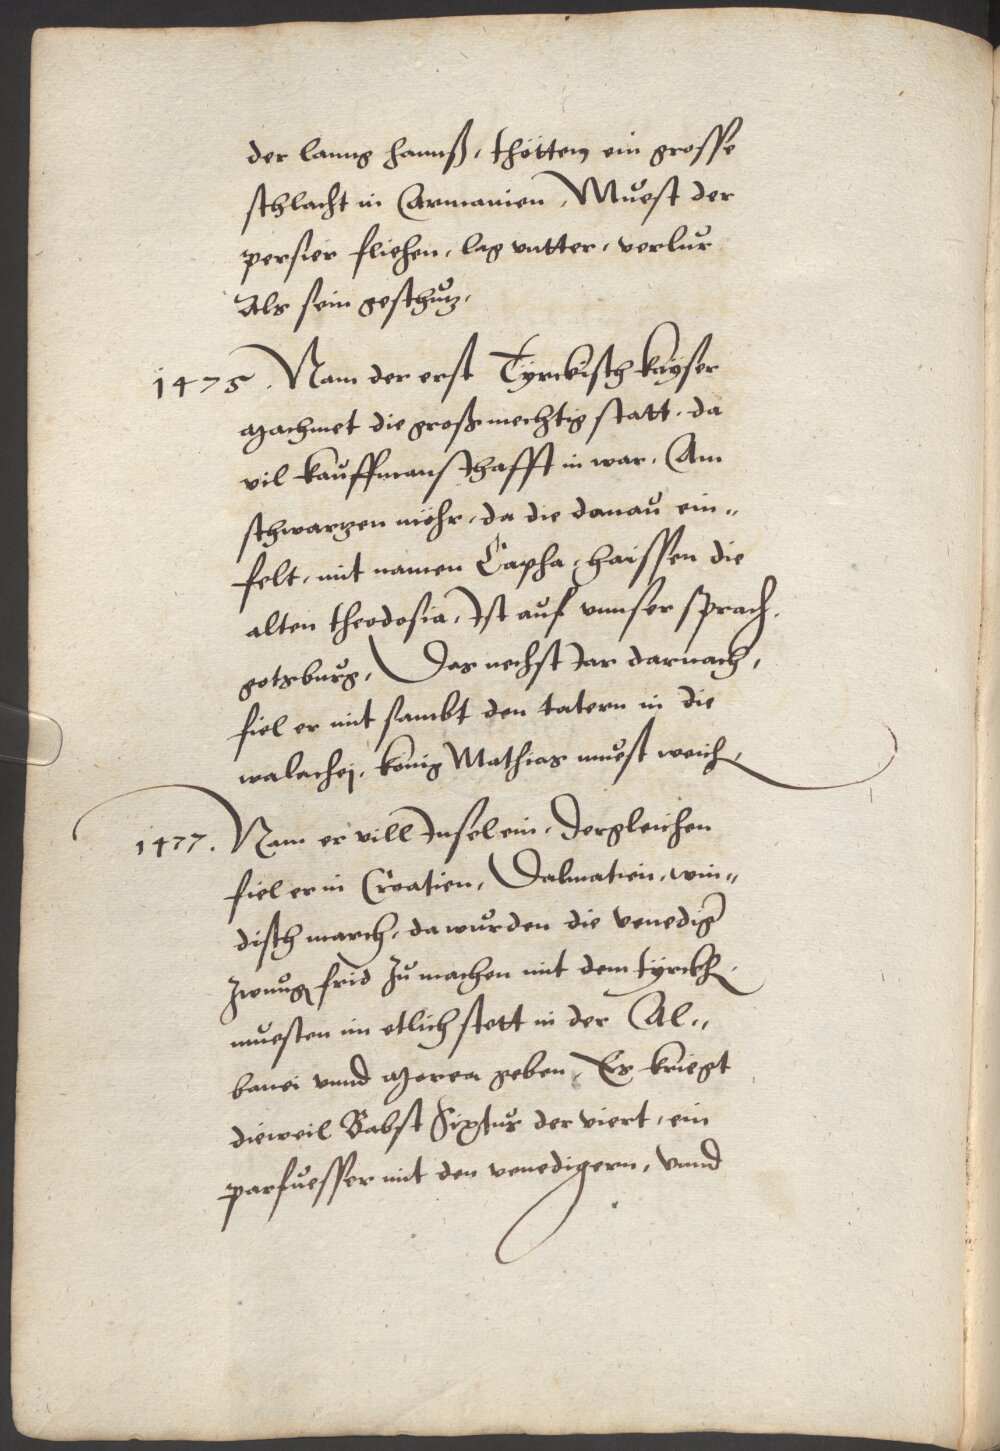 der lanng hannß, thötten ein grosse
schlacht in Armanien, Muest der
persier fliehen, lag vntter, verlur
Als sein geschutz,
1475. Nam der erst Tyrckisch kayser
Machmet die großmechtig statt, da
vil kauffmanschafft in war, Am
schwartzen möhr, da die danau ein„
felt, mit namen Capha, haissen die
alten theodosia, Ist auf vnnser sprach,
gotzburg, Das nechst Jar darnach,
fiel er mit sambt den tatern in die
walachej, könig Mathias muest weich,
1477. Nam er vill Insel ein, dergleichen
fiel er in Croatien, Dalmatien, win„
disch march, da wurden die venedig
zwung frid zu machen mit dem tyrckh,
muesten im etlich stett in der Al„
banei vnnd Morea geben, Es kriegt
dieweil Babst Sixtus der viert, ein
parfuesser mit den venedigern, vnnd